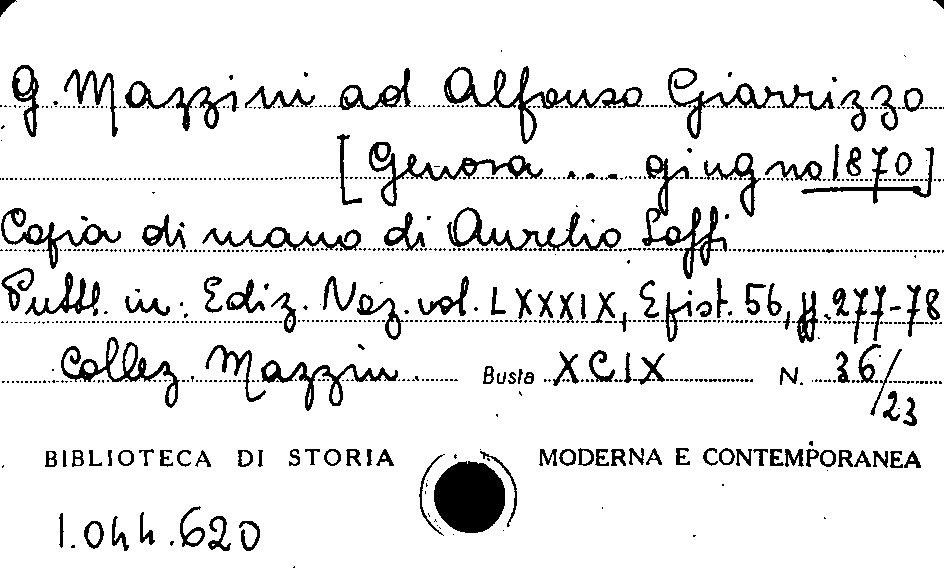 G. Mazzini ad Alfonso Giarrizzo
[Genova ... giugno 1870]
Copia di mano di Aurelio Saffi
Pubbl. in: Ediz. Naz. vol. LXXXIX, Epist. 56, pp. 277-78
Collez. Mazzini. Busta XCIX N. 36/23
BIBLIOTECA DI STORIA MODERNA E CONTEMPORANEA
1.044.620